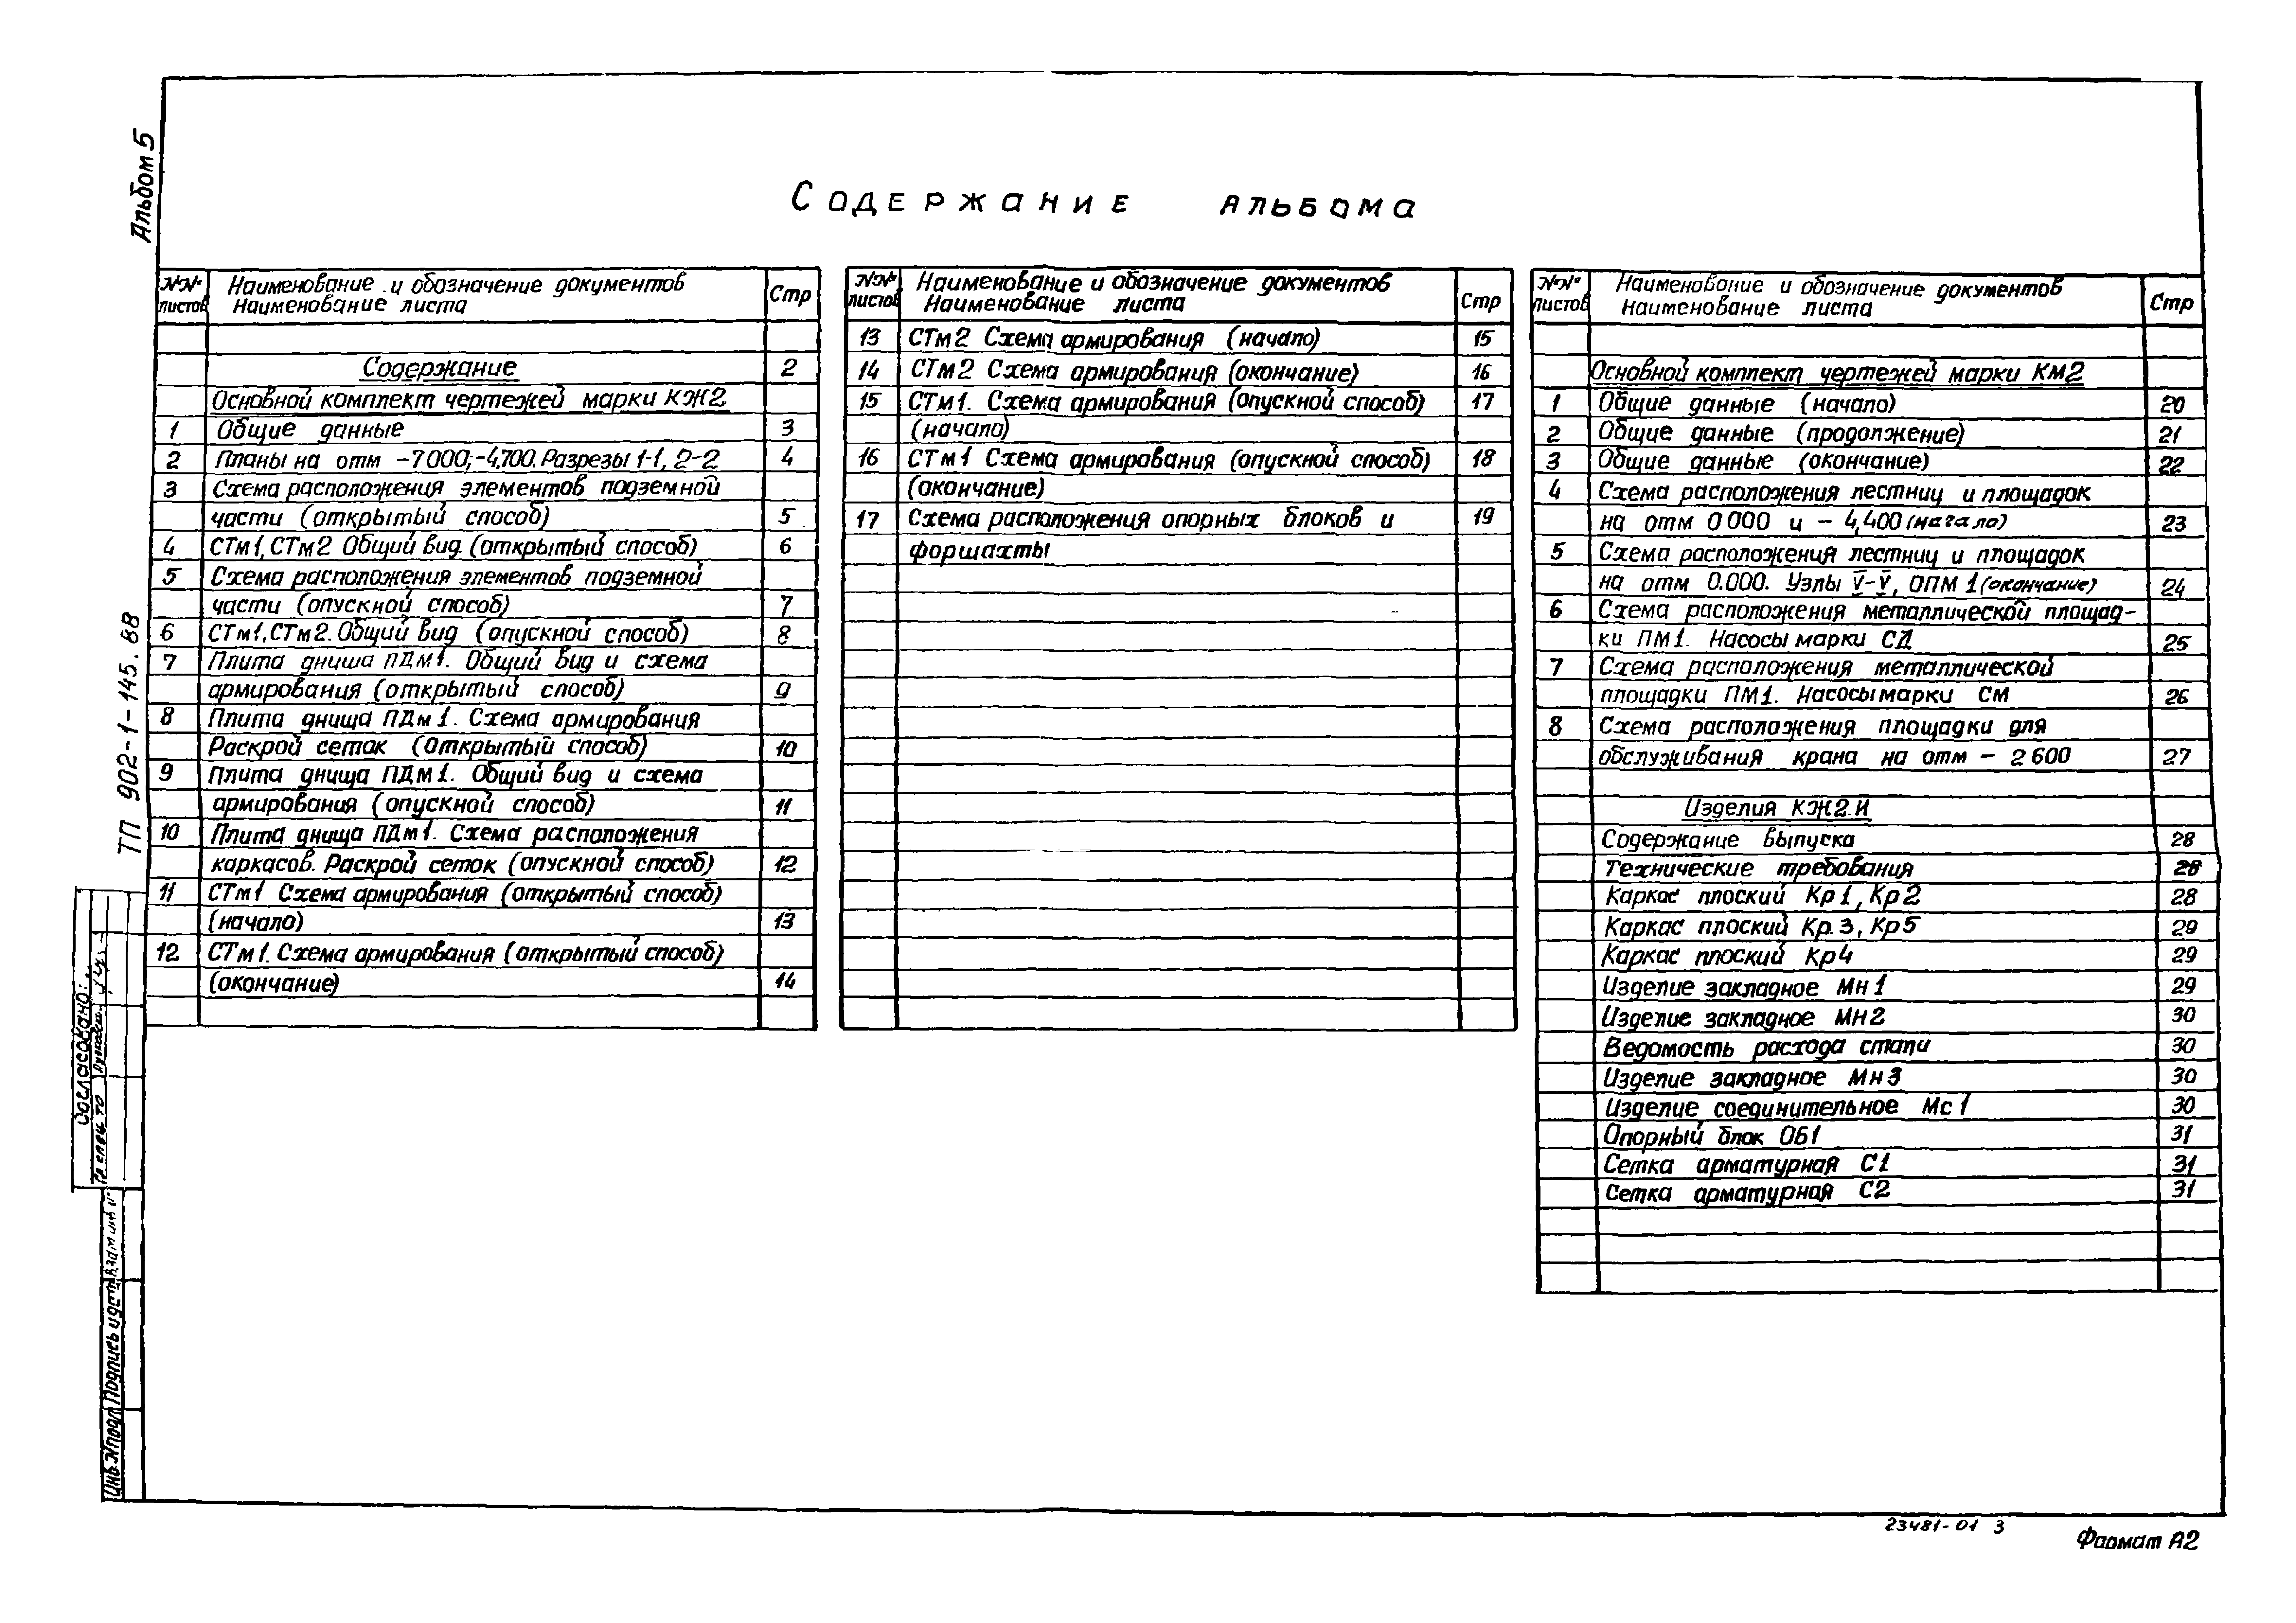 Альбом 5
ТП 902-1-145.88
Содержание альбома
№№ листов Наименование и обозначение документов Наименование листа Стр
Содержание 2
Основной комплект чертежей марки КЖ2
1 Общие данные 3
2 Планы на отм -7000;-4,700. Разрезы 1-1, 2-2 4
3 Схема расположения элементов подземной
части (открытый способ) 5
4 СТм1, СТм2 Общий вид (открытый способ) 6
5 Схема расположения элементов подземной
части (опускной способ) 7
6 СТм1, СТм2. Общий вид (опускной способ) 8
7 Плита днища ПДм1. Общий вид и схема
армирования (открытый способ) 9
8 Плита днища ПДм1. Схема армирования
Раскрой сеток (открытый способ) 10
9 Плита днища ПДм1. Общий вид и схема
армирования (опускной способ) 11
10 Плита днища ПДм1. Схема расположения
каркасов. Раскрой сеток (опускной способ) 12
11 СТм1 Схема армирования (открытый способ)
(начало) 13
12 СТм1. Схема армирования (открытый способ)
(окончание) 14
№№ листов Наименование и обозначение документов Наименование листа Стр
13 СТм2 Схема армирования (начало) 15
14 СТм2 Схема армирования (окончание) 16
15 СТм1. Схема армирования (опускной способ) 17
(начало)
16 СТм1 Схема армирования (опускной способ) 18
(окончание)
17 Схема расположения опорных блоков и 19
форшахты
№№ листов Наименование и обозначение документов Наименование листа Стр
Основной комплект чертежей марки КМ2
1 Общие данные (начало) 20
2 Общие данные (продолжение) 21
3 Общие данные (окончание) 22
4 Схема расположения лестниц и площадок
на отм 0 000 и - 4,400 (начало) 23
5 Схема расположения лестниц и площадок
на отм 0.000. Узлы V-V, ОПМ 1 (окончание) 24
6 Схема расположения металлической площад-
ки ПМ1. Насосы марки СД 25
7 Схема расположения металлической
площадки ПМ1. Насосы марки СМ 26
8 Схема расположения площадки для
обслуживания крана на отм - 2 600 27
Изделия КЖ2.И
Содержание выпуска 28
Технические требования 28
Каркас плоский Кр1, Кр2 28
Каркас плоский Кр.3, Кр5 29
Каркас плоский Кр4 29
Изделие закладное Мн1 29
Изделие закладное Мн2 30
Ведомость расхода стали 30
Изделие закладное Мн3 30
Изделие соединительное Мс1 30
Опорный блок ОБ1 31
Сетка арматурная С1 31
Сетка арматурная С2 31
Согласовано:
Гл спец ТО
Взам инв №
Подпись и дата
Инв. № подл
23481-01 3
Формат А2